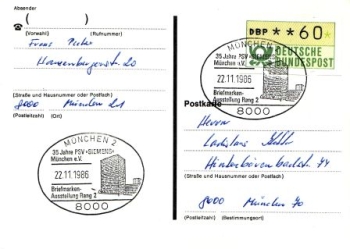 Absender
( )
(Vorwahl) (Rufnummer)
Franz
20
(Straße und Hausnummer oder Postfach)
8000 München 21
(Postleitzahl) (Ort)
MÜNCHEN 2
35 Jahre PSV «SIEMENS»
München e.V.
22.11.1986
Briefmarken-
Ausstellung Rang 2
8000
DBP **60*
DEUTSCHE
BUNDESPOST
MÜNCHEN 2
35 Jahre PSV «SIEMENS»
München e.V.
22.11.1986
Briefmarken-
Ausstellung Rang 2
8000
Postkarte
Herrn
Ladislaus
(Straße und Hausnummer oder Postfach)
8000 München 70
(Postleitzahl) (Bestimmungsort)